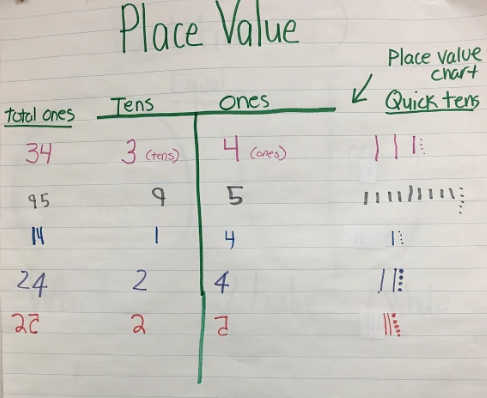 Place Value
Place value
chart
total ones Tens ones Quick tens
34 3 (tens) 4 (ones)
95 9 5
14 1 4
24 2 4
25 2 5